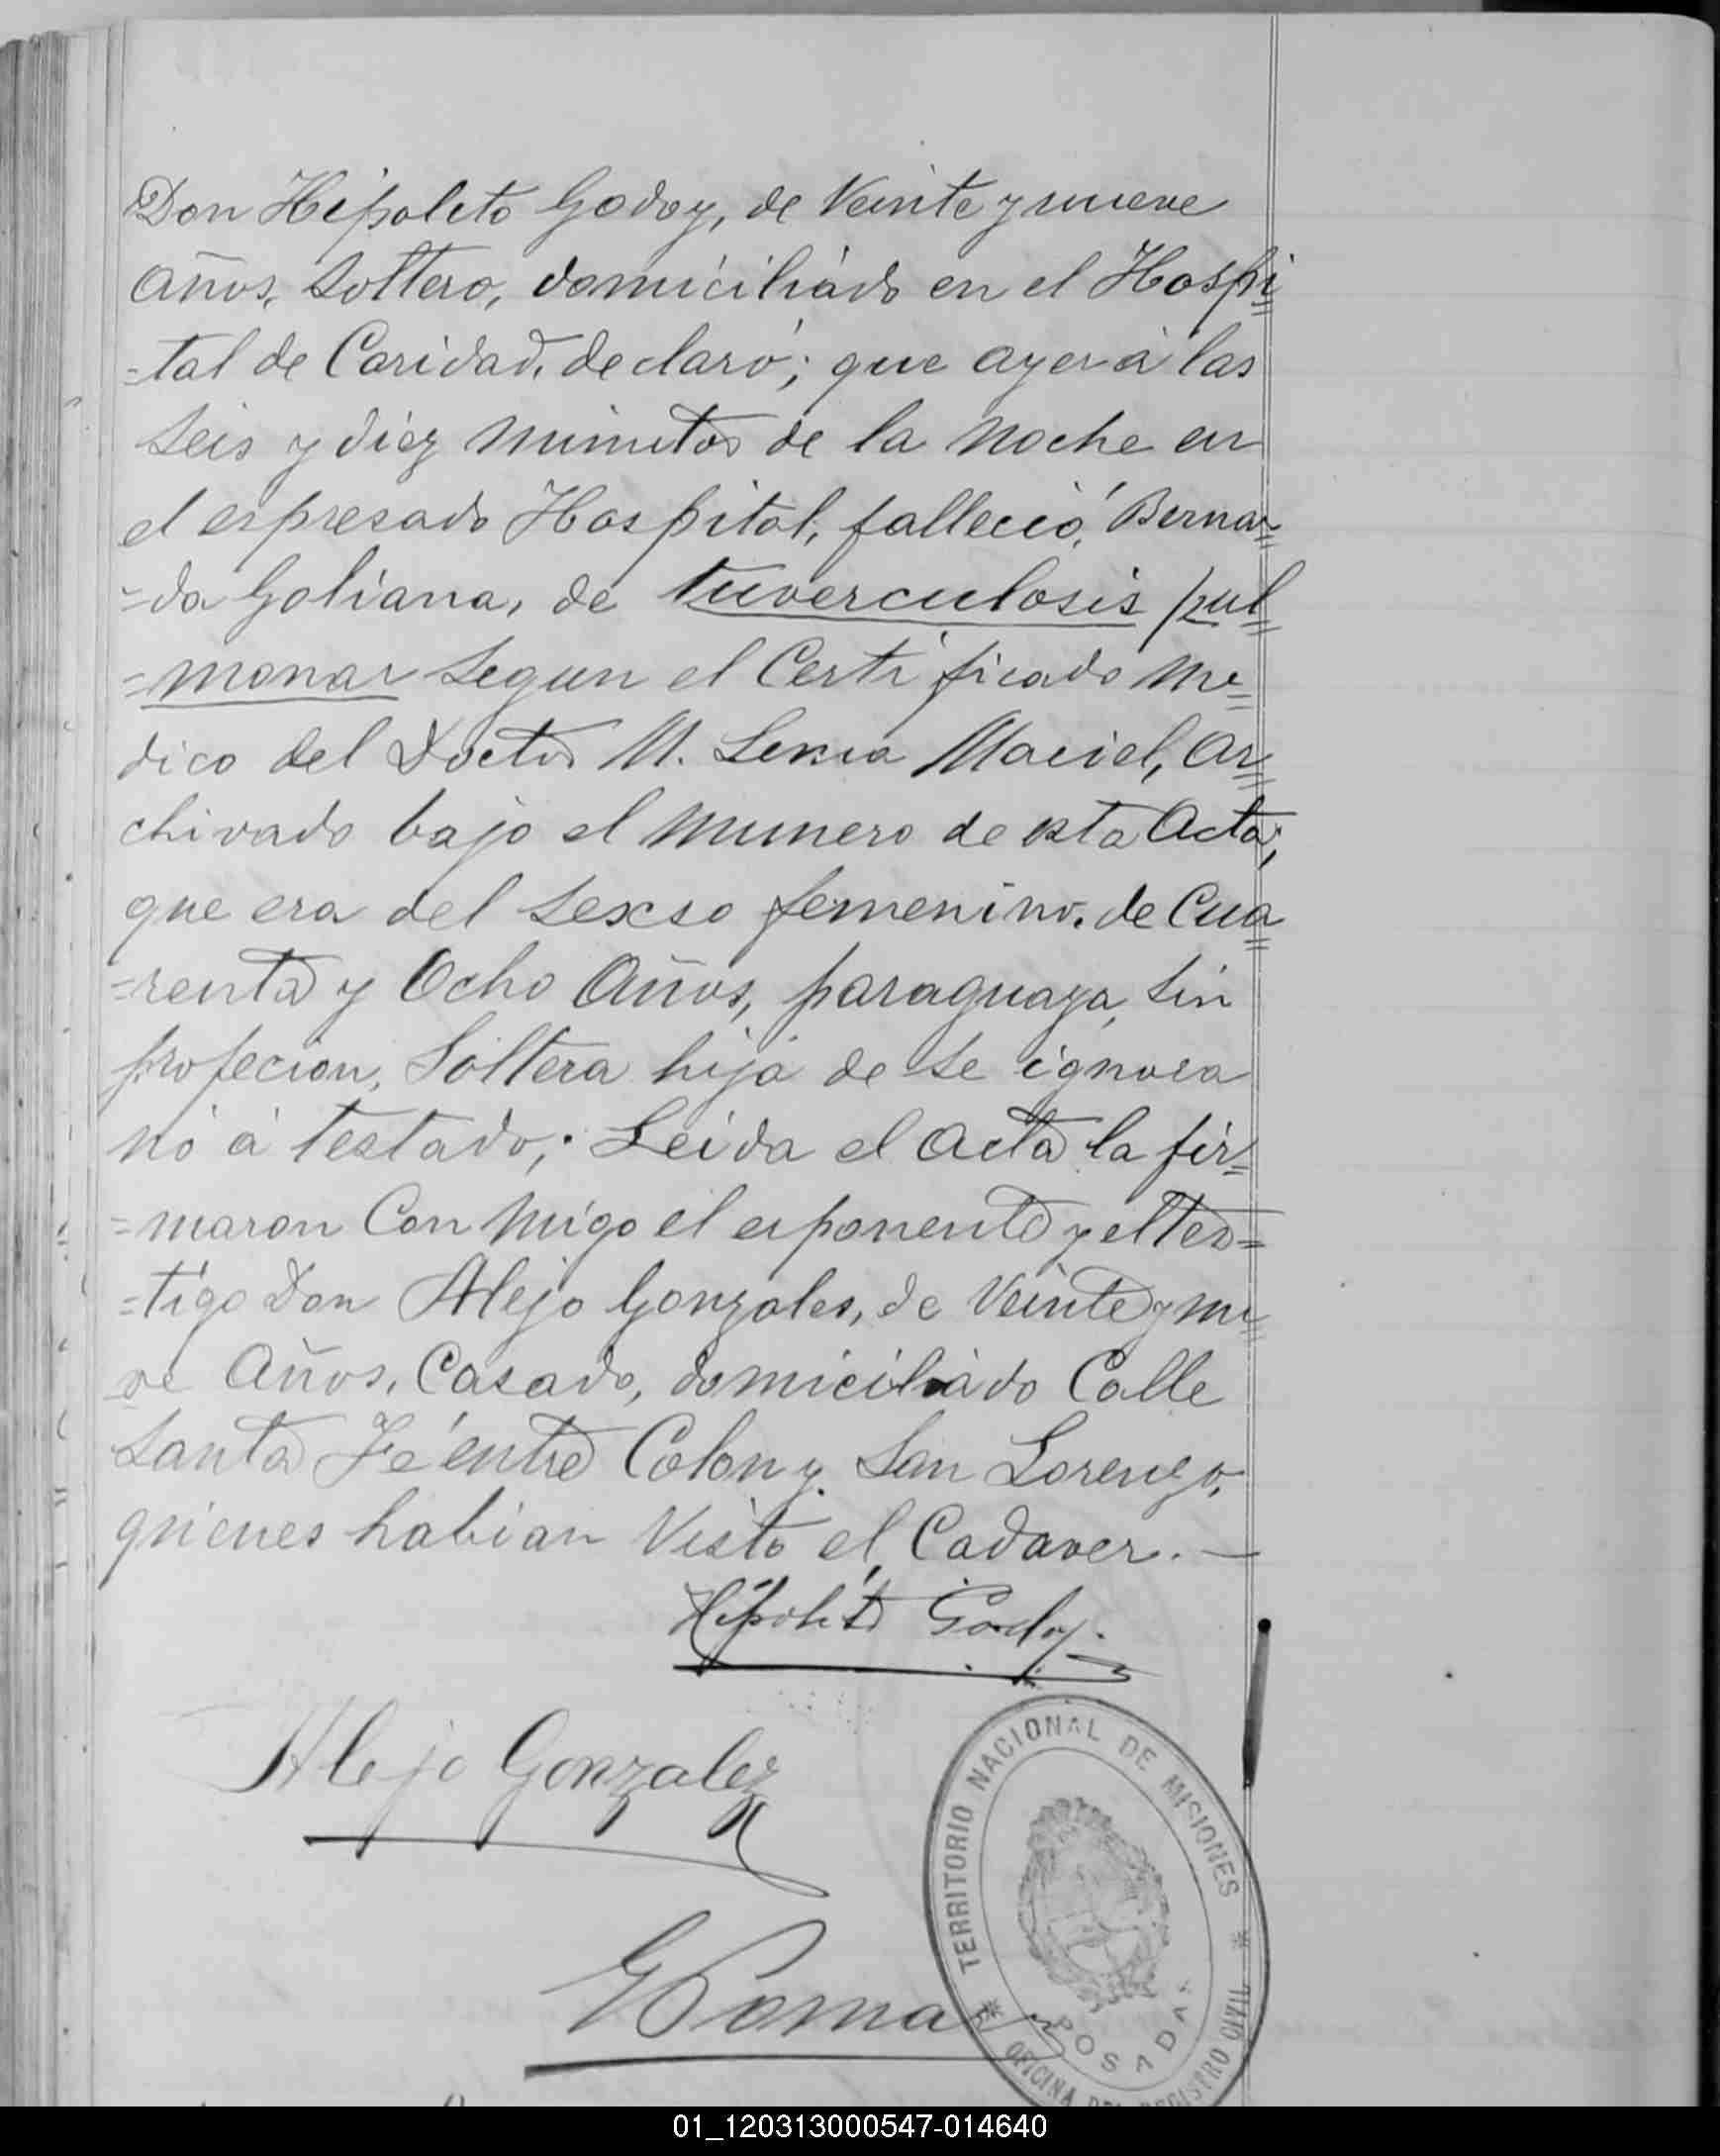 Don Hipoleto Godoy, de Veinte y nueve
Años, Soltero, domiciliado en el Hospi=
=tal de Caridad, declaró; que ayer á las
Seis y diez minutos de la Noche en
el espresado Hospital, falleció, Bernar=
=da Goliana, de tuverculosis pul=
=monar Segun el Certificado Me=
dico del Doctor M. Maciel, Ar=
chivado bajo el Numero de esta Acta;
que era del Sexso femenino, de Cua=
=renta y Ocho Años, paraguaya, Sin
profecion, Soltera hija de Se ignora
nó á testado; Leida el Acta la fir=
=maron Con Migo el esponente y el tes=
=tigo Don Alejo Gonzales, de Veinte y nue=
ve Años, Casado, domiciliado Calle
Santa Fé entre Colon y San Lorenzo,
quienes habian Visto el Cadaver. —
Hipólito Godoy.
Alejo Gonzalez
TERRITORIO NACIONAL DE MISIONES
POSADAS
OFICINA DEL REGISTRO CIVIL
01_120313000547-014640